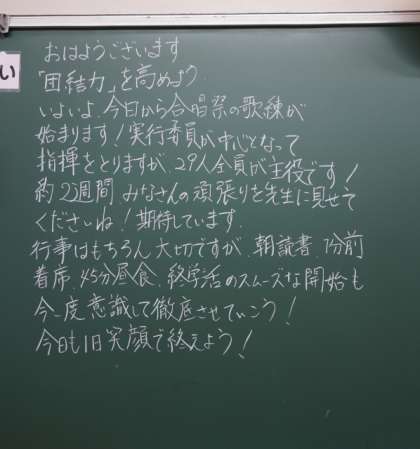 い
おはようございます
「団結力」を高めよう
いよいよ今日から合唱祭の歌練が
始まります！実行委員が中心となって
指揮をとりますが、29人全員が主役です！
約2週間、みなさんの頑張りを先生に見せて
くださいね！期待しています。
行事はもちろん大切ですが、朝読書、1分前
着席、45分昼食、終学活のスムーズな開始も
今一度意識して徹底させていこう！
今日も1日笑顔で終えよう！